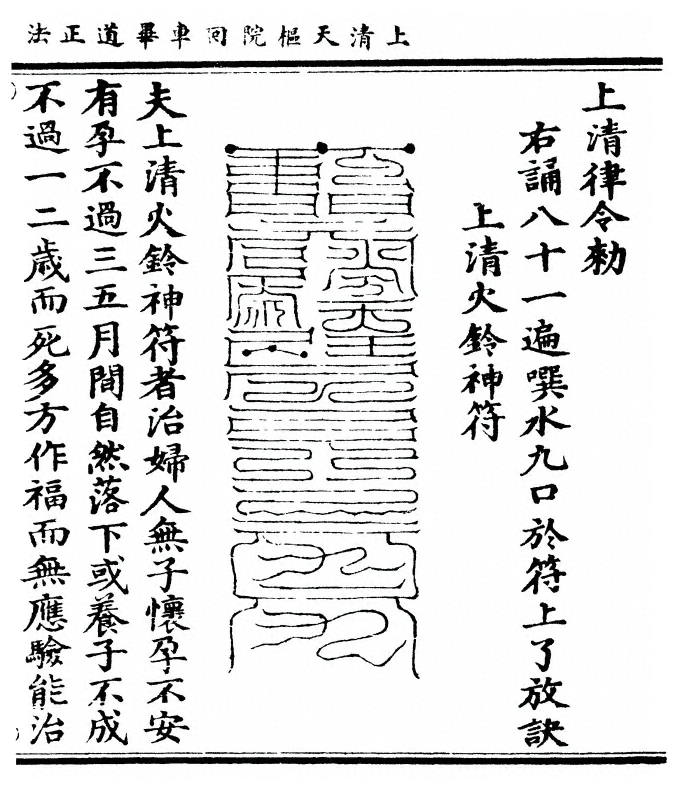 上清天樞院回車畢道正法
上清律令勑
右誦八十一遍噀水九口於符上了放訣
上清火鈴神符
夫上清火鈴神符者治婦人無子懷孕不安
有孕不過三五月間自然落下或養子不成
不過一二歲而死多方作福而無應驗能治